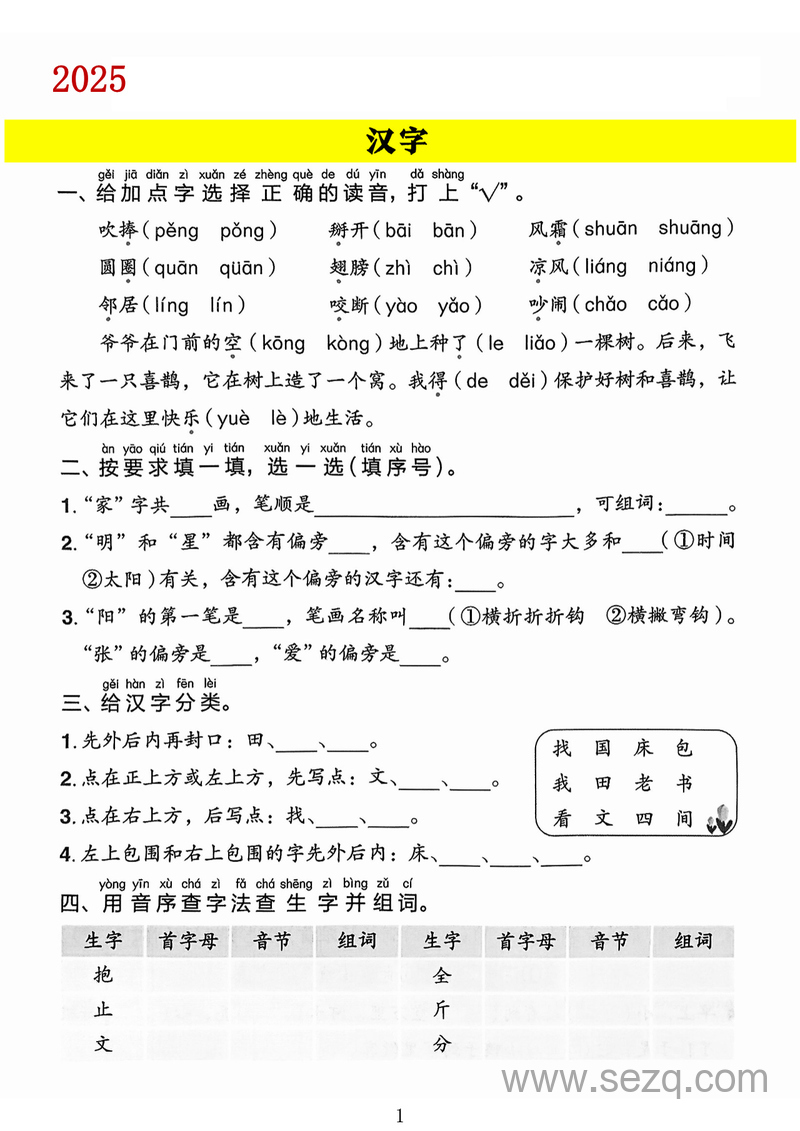 2025
汉字
gěi jiā diǎn zì xuǎn zé zhèng què de dú yīn dǎ shàng
一、给加点字选择正确的读音，打上“√”。
吹捧（pěng pǒng） 掰开（bāi bān） 风霜（shuān shuāng）
圆圈（quān qüān） 翅膀（zhì chì） 凉风（liáng niáng）
邻居（líng lín） 咬断（yào yǎo） 吵闹（chǎo cǎo）
爷爷在门前的空（kōng kòng）地上种了（le liǎo）一棵树。后来，飞
来了一只喜鹊，它在树上造了一个窝。我得（de děi）保护好树和喜鹊，让
它们在这里快乐（yuè lè）地生活。
àn yāo qiú tián yi tián xuǎn yi xuǎn tián xù hào
二、按要求填一填，选一选（填序号）。
1.“家”字共____画，笔顺是__________________________，可组词：______。
2.“明”和“星”都含有偏旁____，含有这个偏旁的字大多和____（①时间
②太阳）有关，含有这个偏旁的汉字还有：____。
3.“阳”的第一笔是____，笔画名称叫____（①横折折折钩 ②横撇弯钩）。
“张”的偏旁是____，“爱”的偏旁是____。
gěi hàn zì fēn lèi
三、给汉字分类。
1.先外后内再封口：田、____、____。
2.点在正上方或左上方，先写点：文、____、____。
3.点在右上方，后写点：找、____、____。
4.左上包围和右上包围的字先外后内：床、____、____、____。
找 国 床 包
我 田 老 书
看 文 四 间
yòng yīn xù chá zì fǎ chá shēng zì bìng zǔ cí
四、用音序查字法查生字并组词。
生字 首字母 音节 组词 生字 首字母 音节 组词
抱 全
止 斤
文 分
www.sezq.com
1